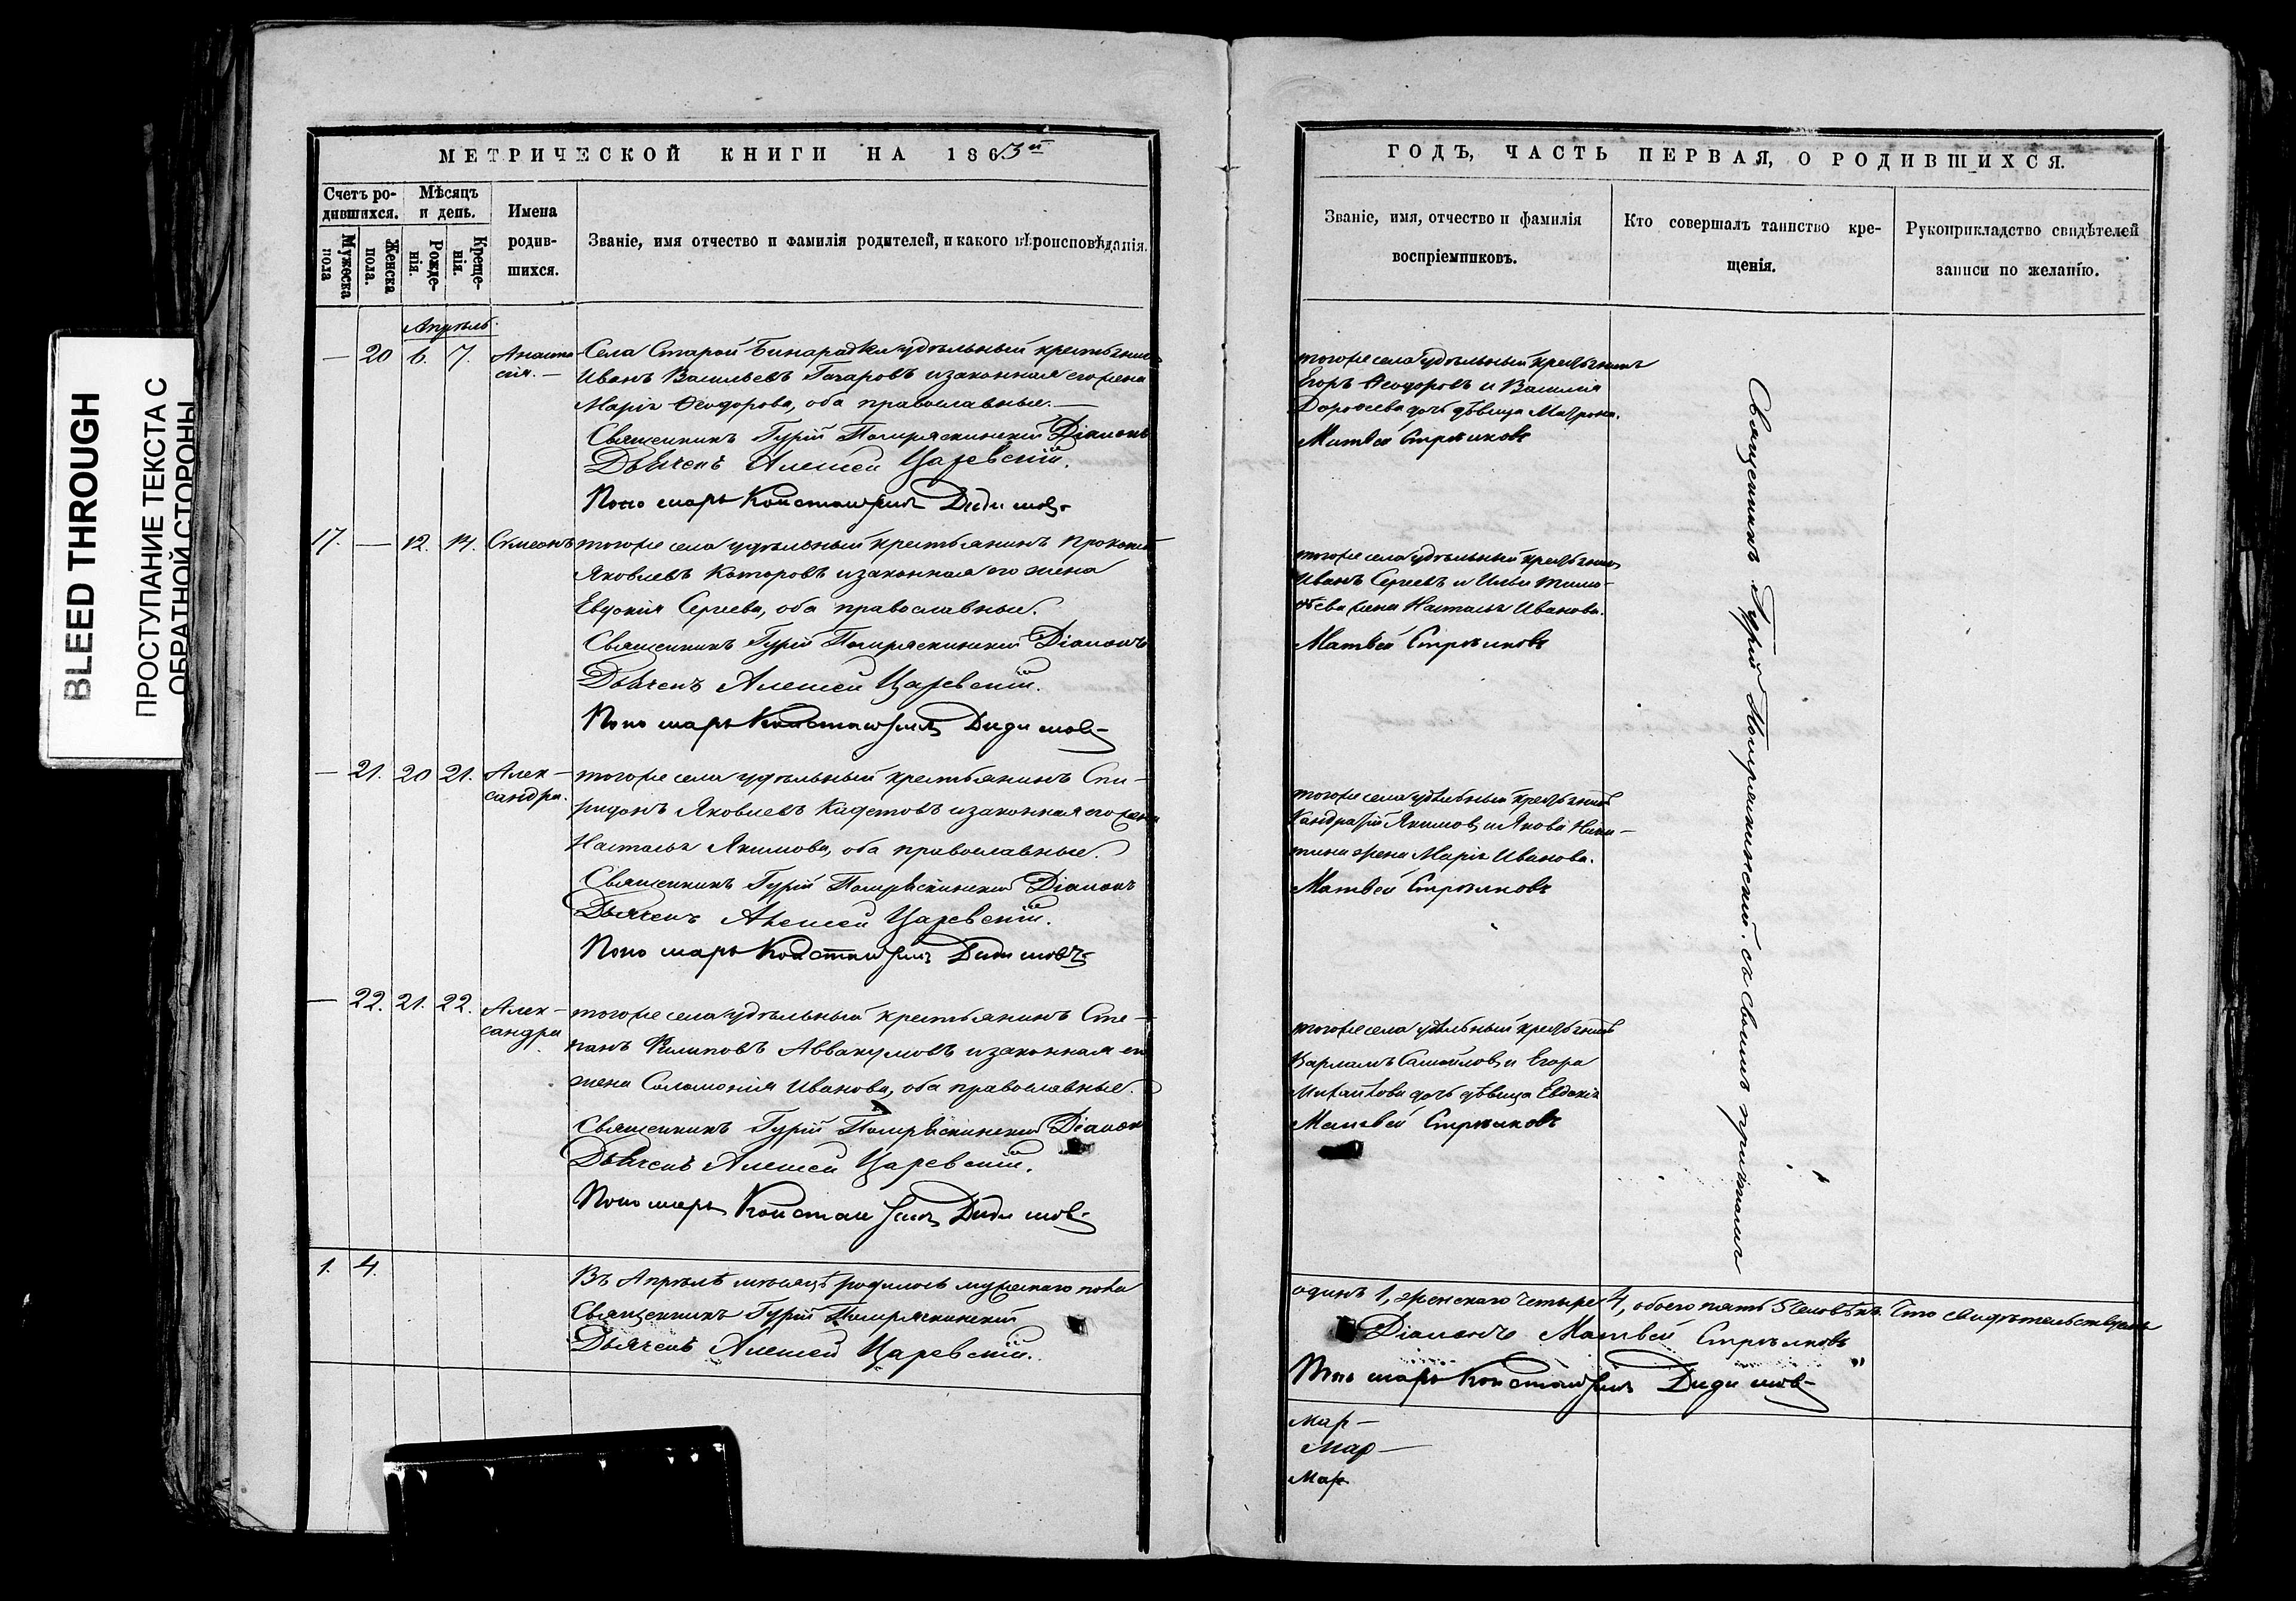 BLEED THROUGH
ПРОСТУПАНИЕ ТЕКСТА С
ОБРАТНОЙ СТОРОНЫ
МЕТРИЧЕСКОЙ КНИГИ НА 1863й
Счетъ ро-
дившихся.
Мѣсяцъ
и день.
Имена
родив-
шихся.
Званіе, имя отчество и фамилія родителей, и какого вѣроисповѣданія.
Мужеска
пола
Женска
пола.
Рожде-
нія.
Креще-
нія.
Апрѣль.
— 20 6. 7. Анаста-
сія. —
Села Старой Бинарадки удѣльный крестьянинъ
Иванъ Васильевъ Гачаровъ и законная его жена
Марія Ѳеодорова, оба православные. —
Священникъ Гурій Діаконъ
Дьячекъ Алексей Царевскій.
Пономарь Константинъ Дидимовъ
17. — 12. 14. Сѵмеонъ
тогоже села удѣльный крестьянинъ Прокопій
Яковлевъ Которовъ и законная его жена
Евдокія Сергеева, оба православные.
Священникъ Гурій Діаконъ
Дьячекъ Алексей Царевскій.
Пономарь Константинъ Дидимовъ
— 21. 20 21. Алек-
сандра.
тогоже села удѣльный крестьянинъ Спи-
ридонъ Яковлевъ и законная его жена
Наталья Якимова, оба православные.
Священникъ Гурій Діаконъ
Дьячекъ Алексей Царевскій.
Пономарь Константинъ Дидимовъ
— 22. 21. 22. Алек-
сандра
тогоже села удѣльный крестьянинъ Сте-
панъ Филиповъ Аввакумовъ и законная его
жена Соломонія Иванова, оба православные.
Священникъ Гурій Діаконъ
Дьячекъ Алексей Царевскій.
Пономарь Константинъ Дидимовъ
1. 4.
Въ Апрѣлѣ мѣсяцѣ родилось мужескаго пола
Священникъ Гурій
Дьячекъ Алексей Царевскій.
ГОДЪ, ЧАСТЬ ПЕРВАЯ, О РОДИВШИХСЯ.
Званіе, имя, отчество и фамилія
воспріемниковъ.
Кто совершалъ таинство кре-
щенія.
Рукоприкладство свидѣтелей
записи по желанію.
тогоже села удѣльный крестьянинъ
Егоръ Ѳеодоровъ и Василія
Дороѳеева дочь дѣвица Матрона.
Матвей Стрѣлковъ
тогоже села удѣльный крестьянинъ
Иванъ Сергеевъ и Ильи Тимо-
ѳѣева жена Наталья Иванова.
Матвей Стрѣлковъ
тогоже села удѣльный крестьянинъ
Кандратій Якимовъ и Якова Ники-
тина жена Марія Иванова.
Матвей Стрѣлковъ
тогоже села удѣльный крестьянинъ
Варламъ Самойловъ и Егора
Михайлова дочь дѣвица Евдокія
Матвей Стрѣлковъ
Священникъ Гурій съ своимъ причтомъ
одинъ 1, женскаго четыре 4, обоего пять 5 человѣкъ. Что свидѣтельствуемъ
Діаконъ Матвей Стрѣлковъ
Пономарь Константинъ Дидимовъ
Мар—
Мар—
Мар